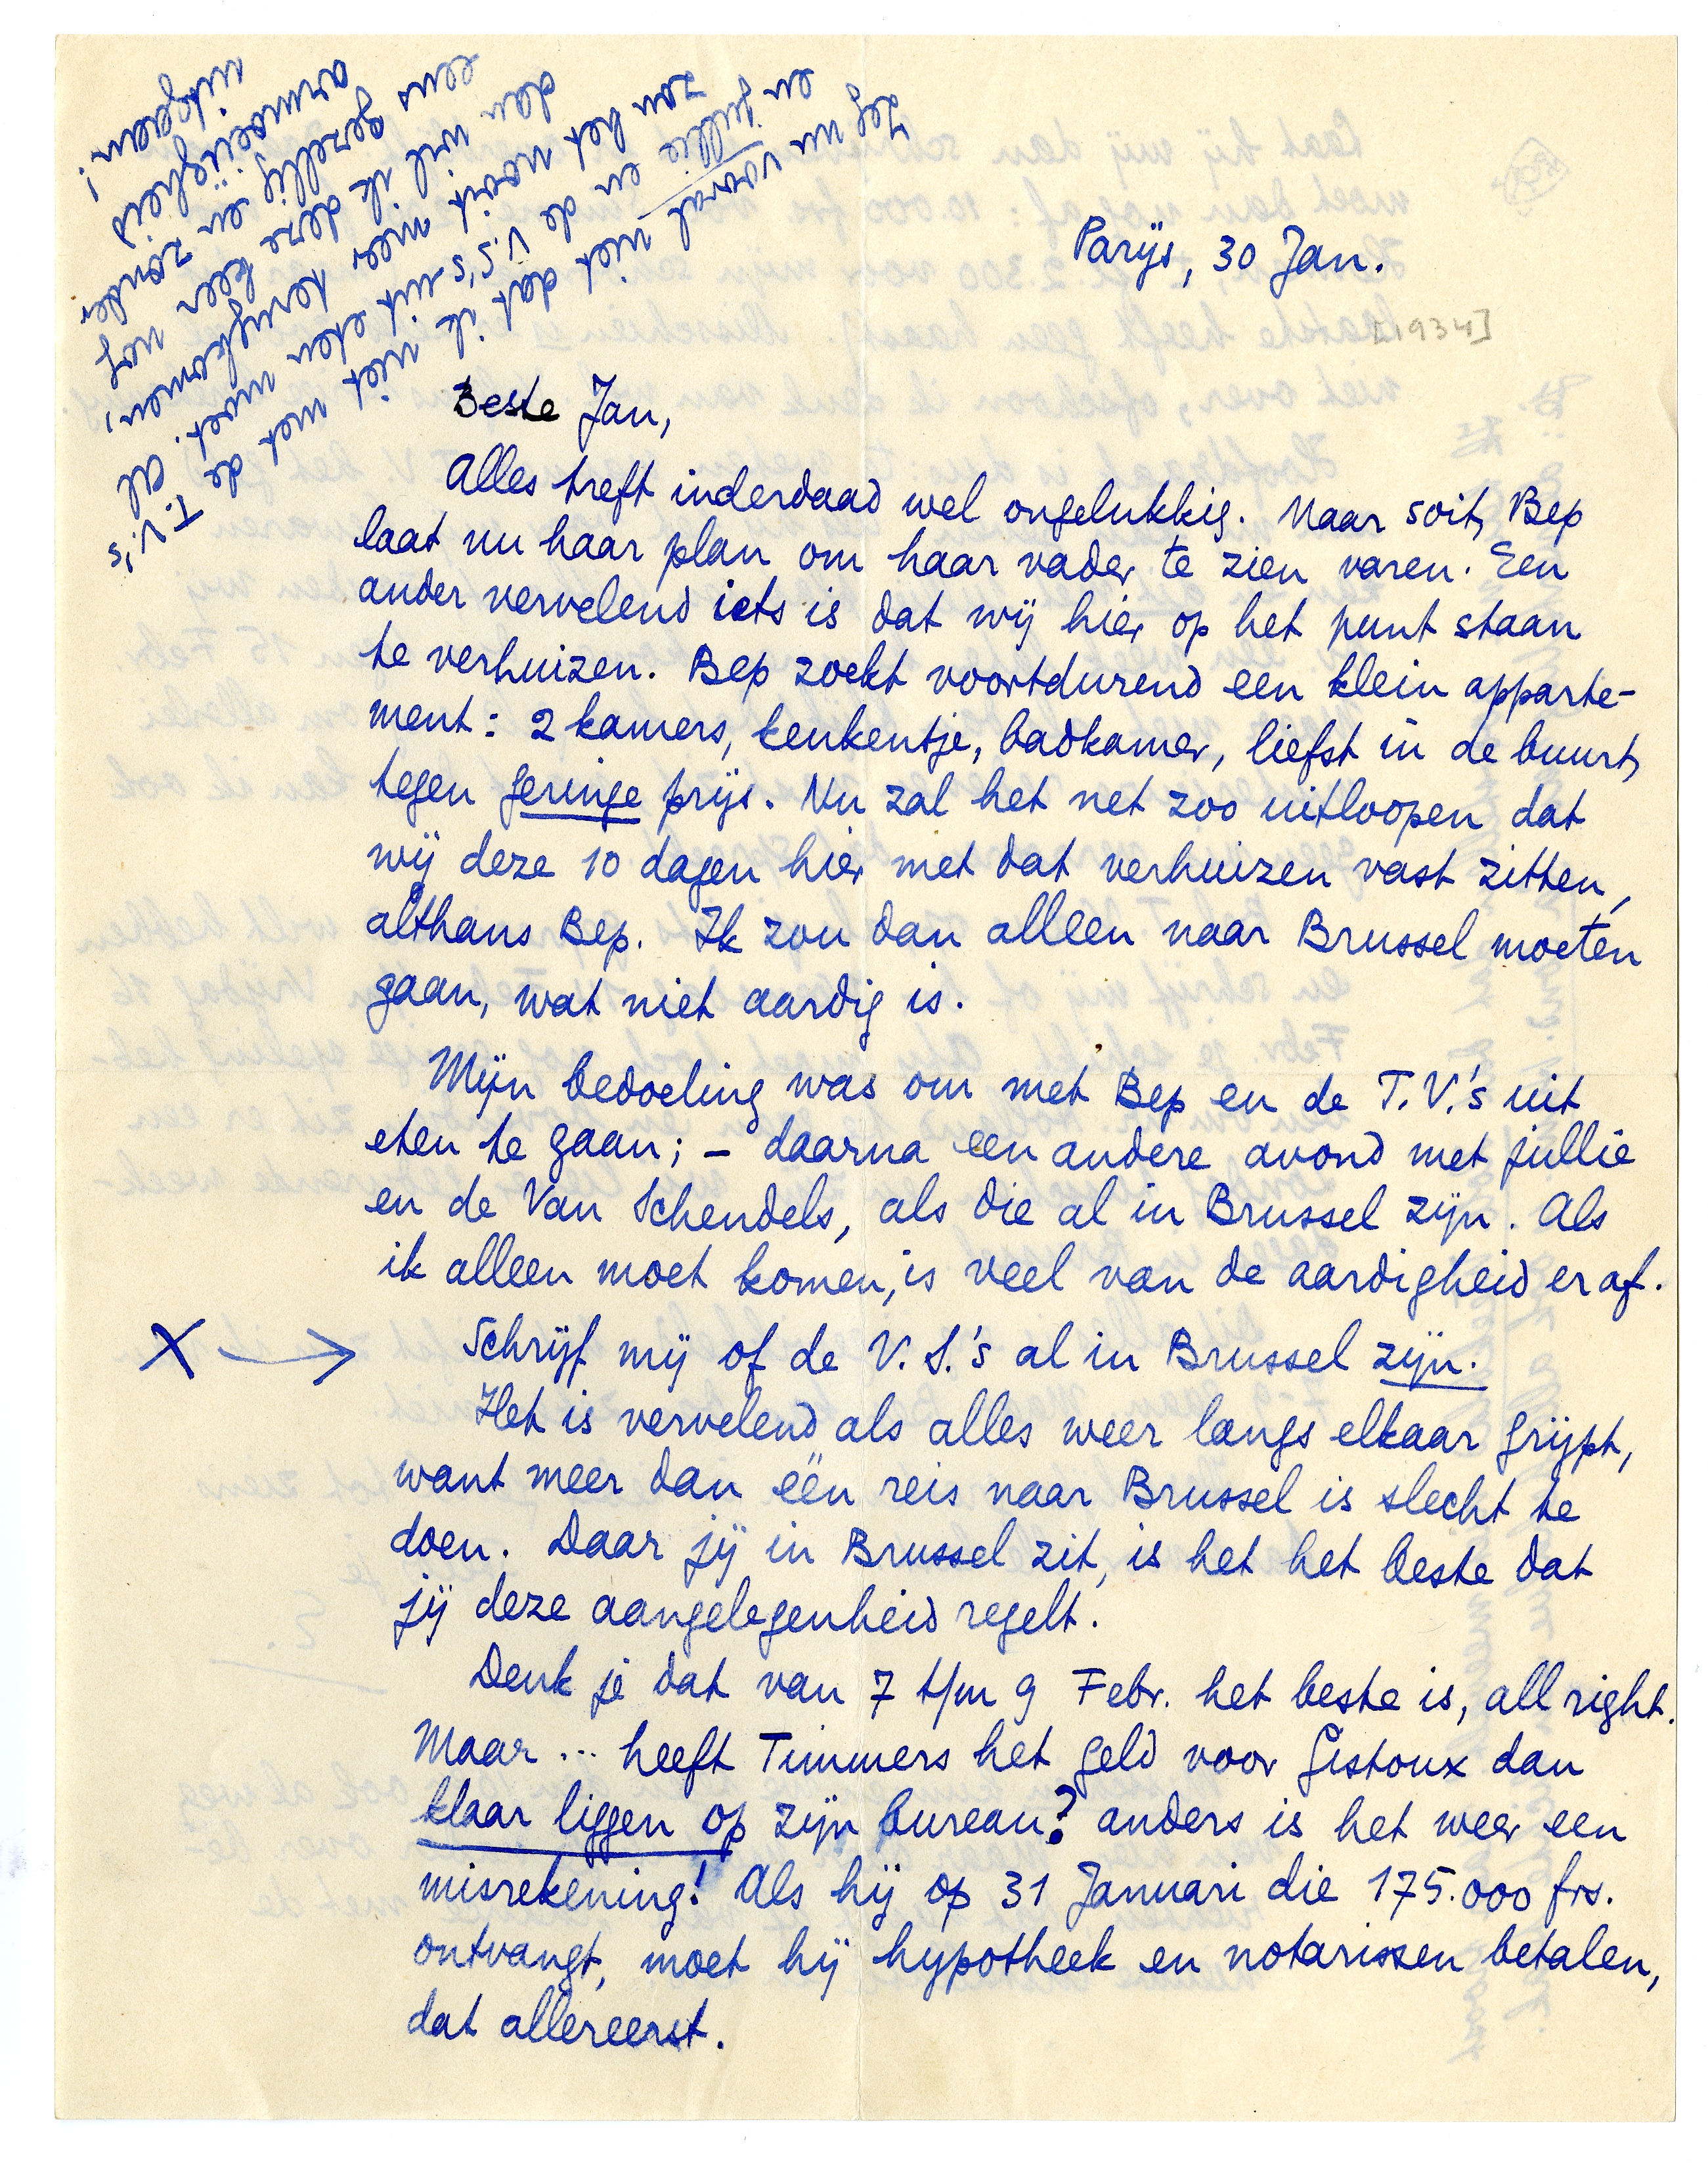 Zeg nu vooral niet dat ik niet met de T.V.'s
en jullie en de V.S.'s uit eten moet. Al
zou het nooit meer terugkomen,
dan wil ik deze keer nog
eens gezellig en zonder
armoeiïgheid
uitgaan!
Parijs, 30 Jan.
[1934]
Beste Jan,
Alles treft inderdaad wel ongelukkig. Maar soit, Bep
laat nu haar plan om haar vader te zien varen. Een
ander vervelend iets is dat wij hier op het punt staan
te verhuizen. Bep zoekt voortdurend een klein apparte-
ment: 2 kamers, keukentje, badkamer, liefst in de buurt,
tegen geringe prijs. Nu zal het net zoo uitloopen dat
wij deze 10 dagen hier met dat verhuizen vast zitten,
althans Bep. Ik zou dan alleen naar Brussel moeten
gaan, wat niet aardig is.
Mijn bedoeling was om met Bep en de T.V.'s uit
eten te gaan; – daarna een andere avond met jullie
en de Van Schendels, als die al in Brussel zijn. Als
ik alleen moet komen, is veel van de aardigheid eraf.
X → Schrijf mij of de V.S.'s al in Brussel zijn.
Het is vervelend als alles weer langs elkaar grijpt,
want meer dan één reis naar Brussel is slecht te
doen. Daar jij in Brussel zit, is het het beste dat
jij deze aangelegenheid regelt.
Denk je dat van 7 t/m 9 Febr. het beste is, all right.
Maar ... heeft Timmers het geld voor Gistoux dan
klaar liggen op zijn bureau? anders is het weer een
misrekening! Als hij op 31 Januari die 175.000 frs.
ontvangt, moet hij hypotheek en notarissen betalen,
dat allereerst.